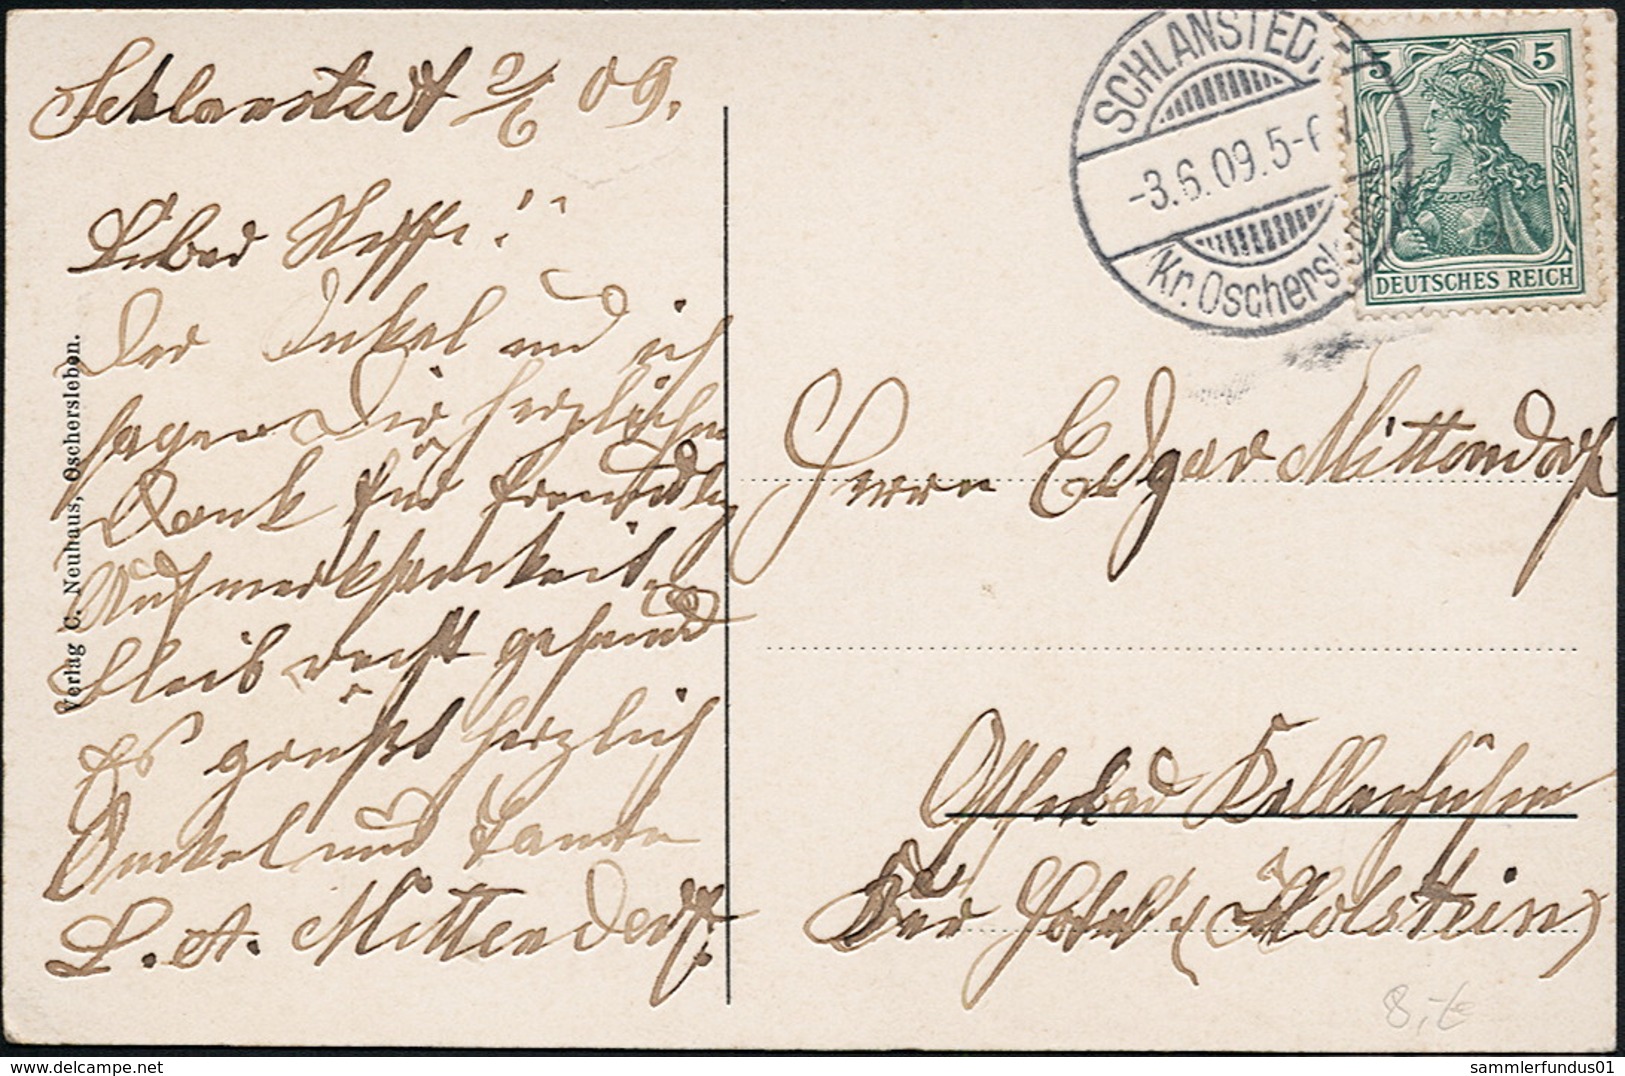 Schlanstedt 2/6 09.
Lieber Neffe!
Der Onkel und ich
sagen Dir herzlichen
Dank für freundliche
Aufmerksamkeit.
bleib recht gesund
Es grüßt herzlich
Onkel und Tante
L. A. Mittendorf.
Verlag C. Neuhaus, Oschersleben.
SCHLANSTEDT
-3.6.09.5-6
Kr. Oschersleben
5 5
DEUTSCHES REICH
Herrn Edgar Mittendorf
Ostseebad Kellenhüsen
(Holstein)
8,-€
sammlerfundus01